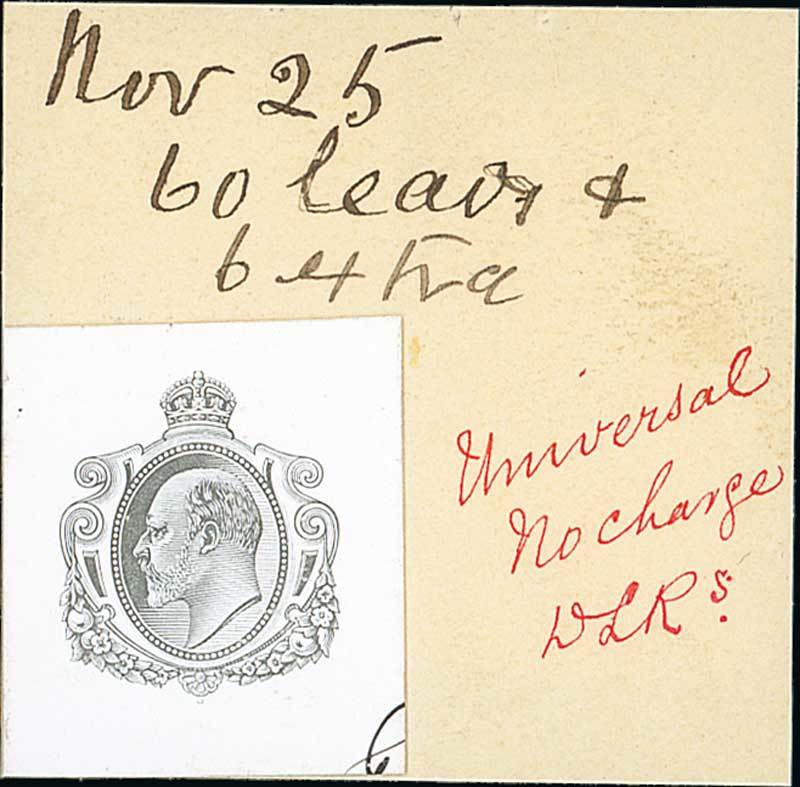 Nov 25
60 leavs &
6 extra
Universal
No charge
DLRs.